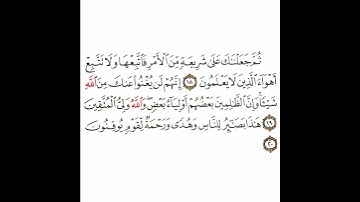 ثُمَّ جَعَلْنَٰكَ عَلَىٰ شَرِيعَةٍ مِّنَ ٱلْأَمْرِ فَٱتَّبِعْهَا وَلَا تَتَّبِعْ
أَهْوَآءَ ٱلَّذِينَ لَا يَعْلَمُونَ ١٨ إِنَّهُمْ لَن يُغْنُوا۟ عَنكَ مِنَ ٱللَّهِ
شَيْـًٔا وَإِنَّ ٱلظَّٰلِمِينَ بَعْضُهُمْ أَوْلِيَآءُ بَعْضٍ وَٱللَّهُ وَلِىُّ ٱلْمُتَّقِينَ
١٩ هَٰذَا بَصَٰٓئِرُ لِلنَّاسِ وَهُدًى وَرَحْمَةٌ لِّقَوْمٍ يُوقِنُونَ
٢٠